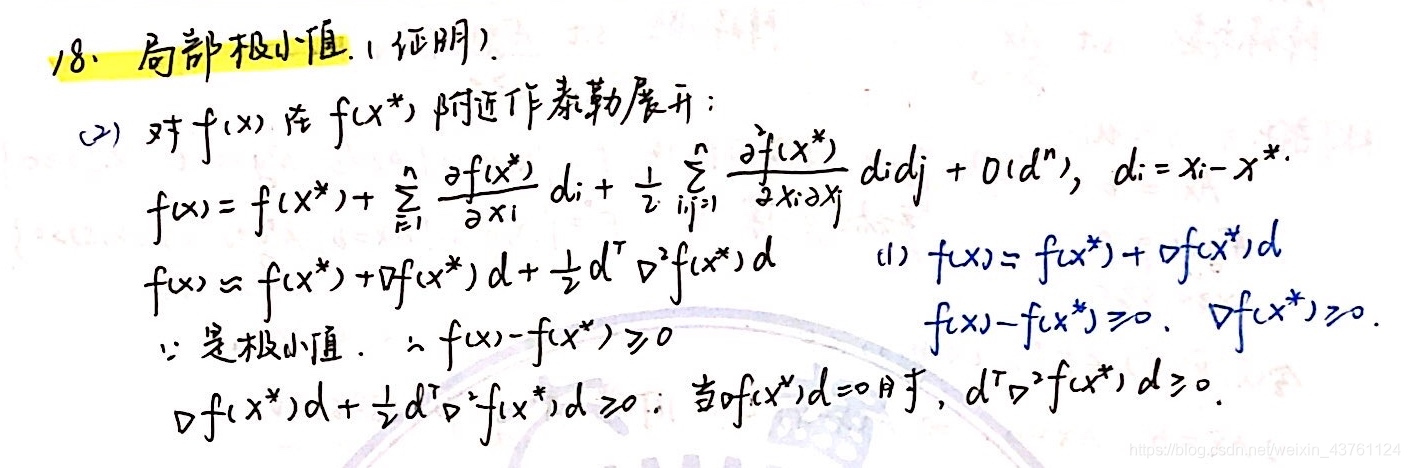 18. 局部极小值. (证明).
(2) 对 f(x) 在 f(x*) 附近作泰勒展开:
f(x) = f(x*) + ∑_{i=1}^{n} ∂f(x*)/∂x_i d_i + 1/2 ∑_{i,j=1}^{n} ∂²f(x*)/∂x_i∂x_j d_i d_j + O(dⁿ), d_i = x_i - x*.
f(x) ≈ f(x*) + ∇f(x*) d + 1/2 dᵀ ∇²f(x*) d
(1) f(x) = f(x*) + ∇f(x*) d
∵ 是极小值. ∴ f(x) - f(x*) ≥ 0
f(x) - f(x*) ≥ 0. ∇f(x*) ≥ 0.
∇f(x*) d + 1/2 dᵀ ∇²f(x*) d ≥ 0: 当∇f(x*) d = 0 时, dᵀ ∇²f(x*) d ≥ 0.
https://blog.csdn.net/weixin_43761124